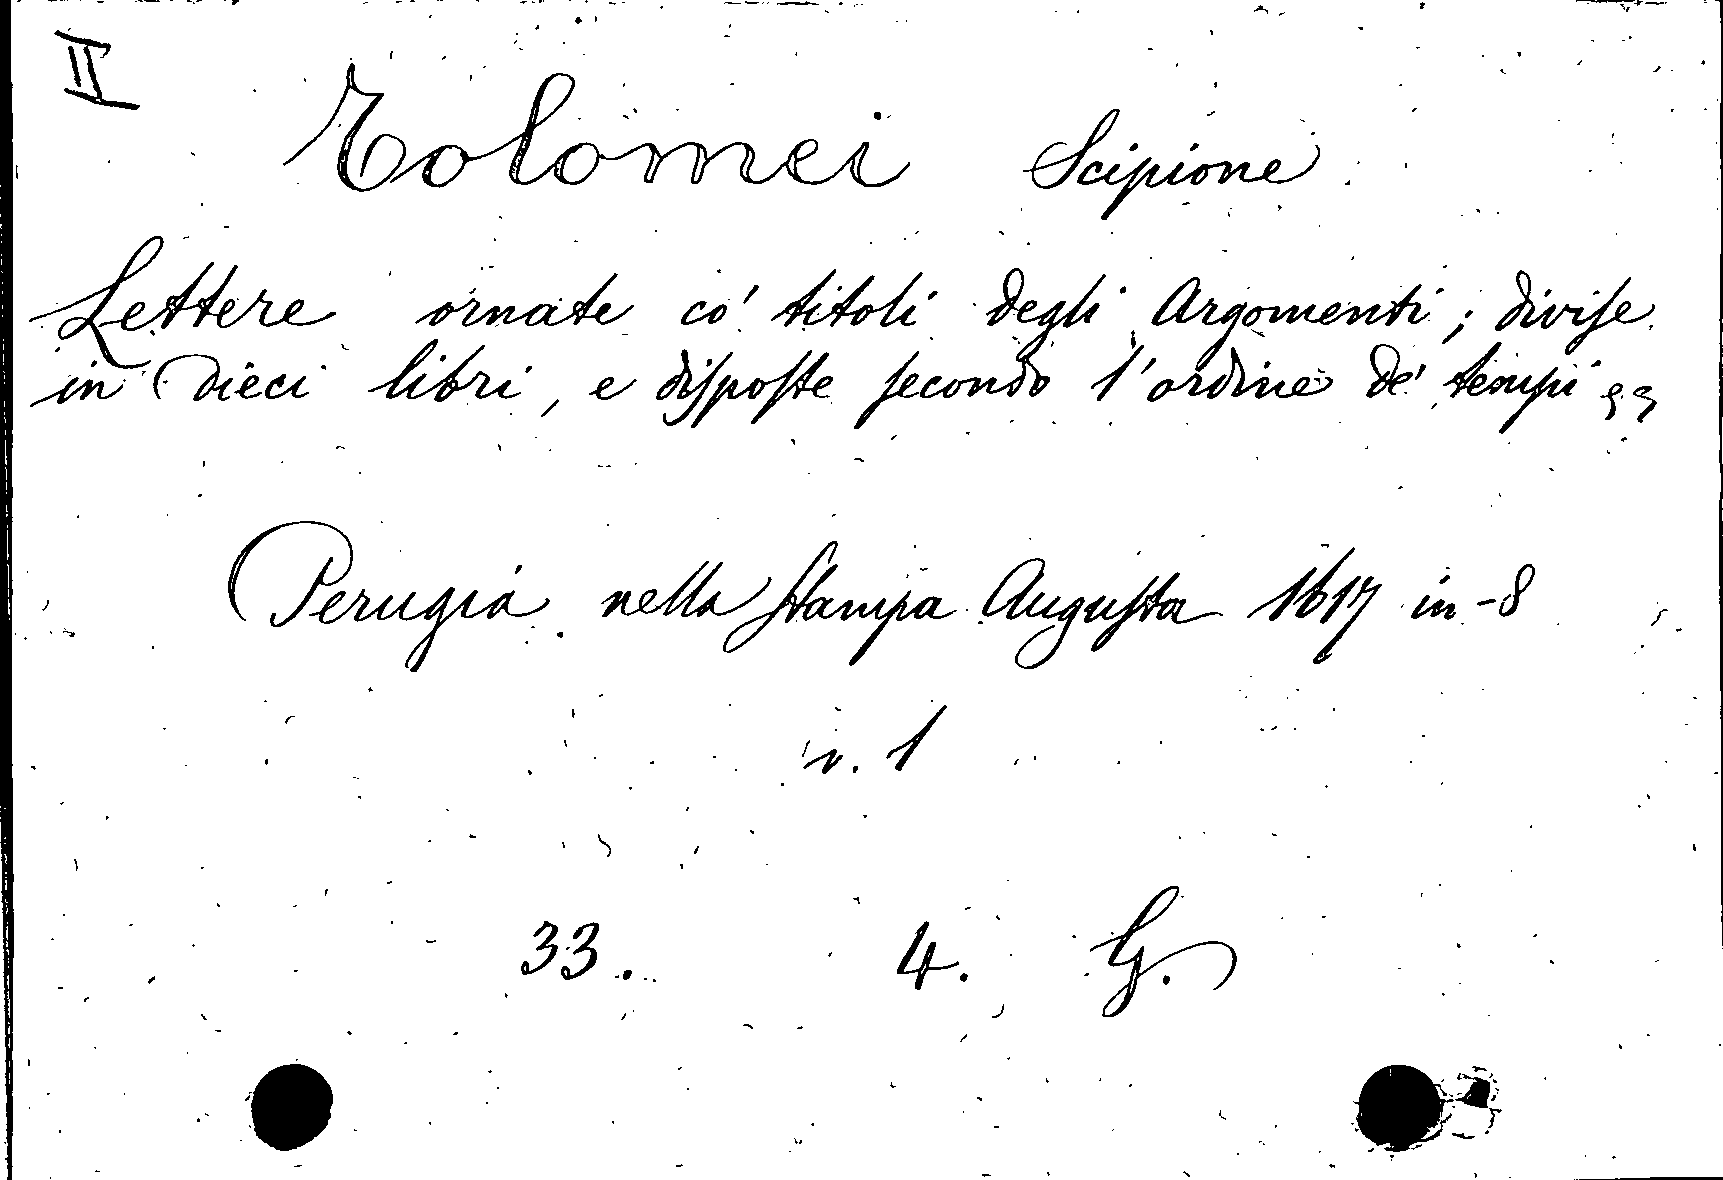 II
Tolomei Scipione
Lettere ornate co' titoli degli Argomenti; diviſe
in Dieci libri, e diſpoſte ſecondo l'ordine de' tempi
Perugia nella Stampa Auguſta 1617 in-8
v. 1
33. 4. G.